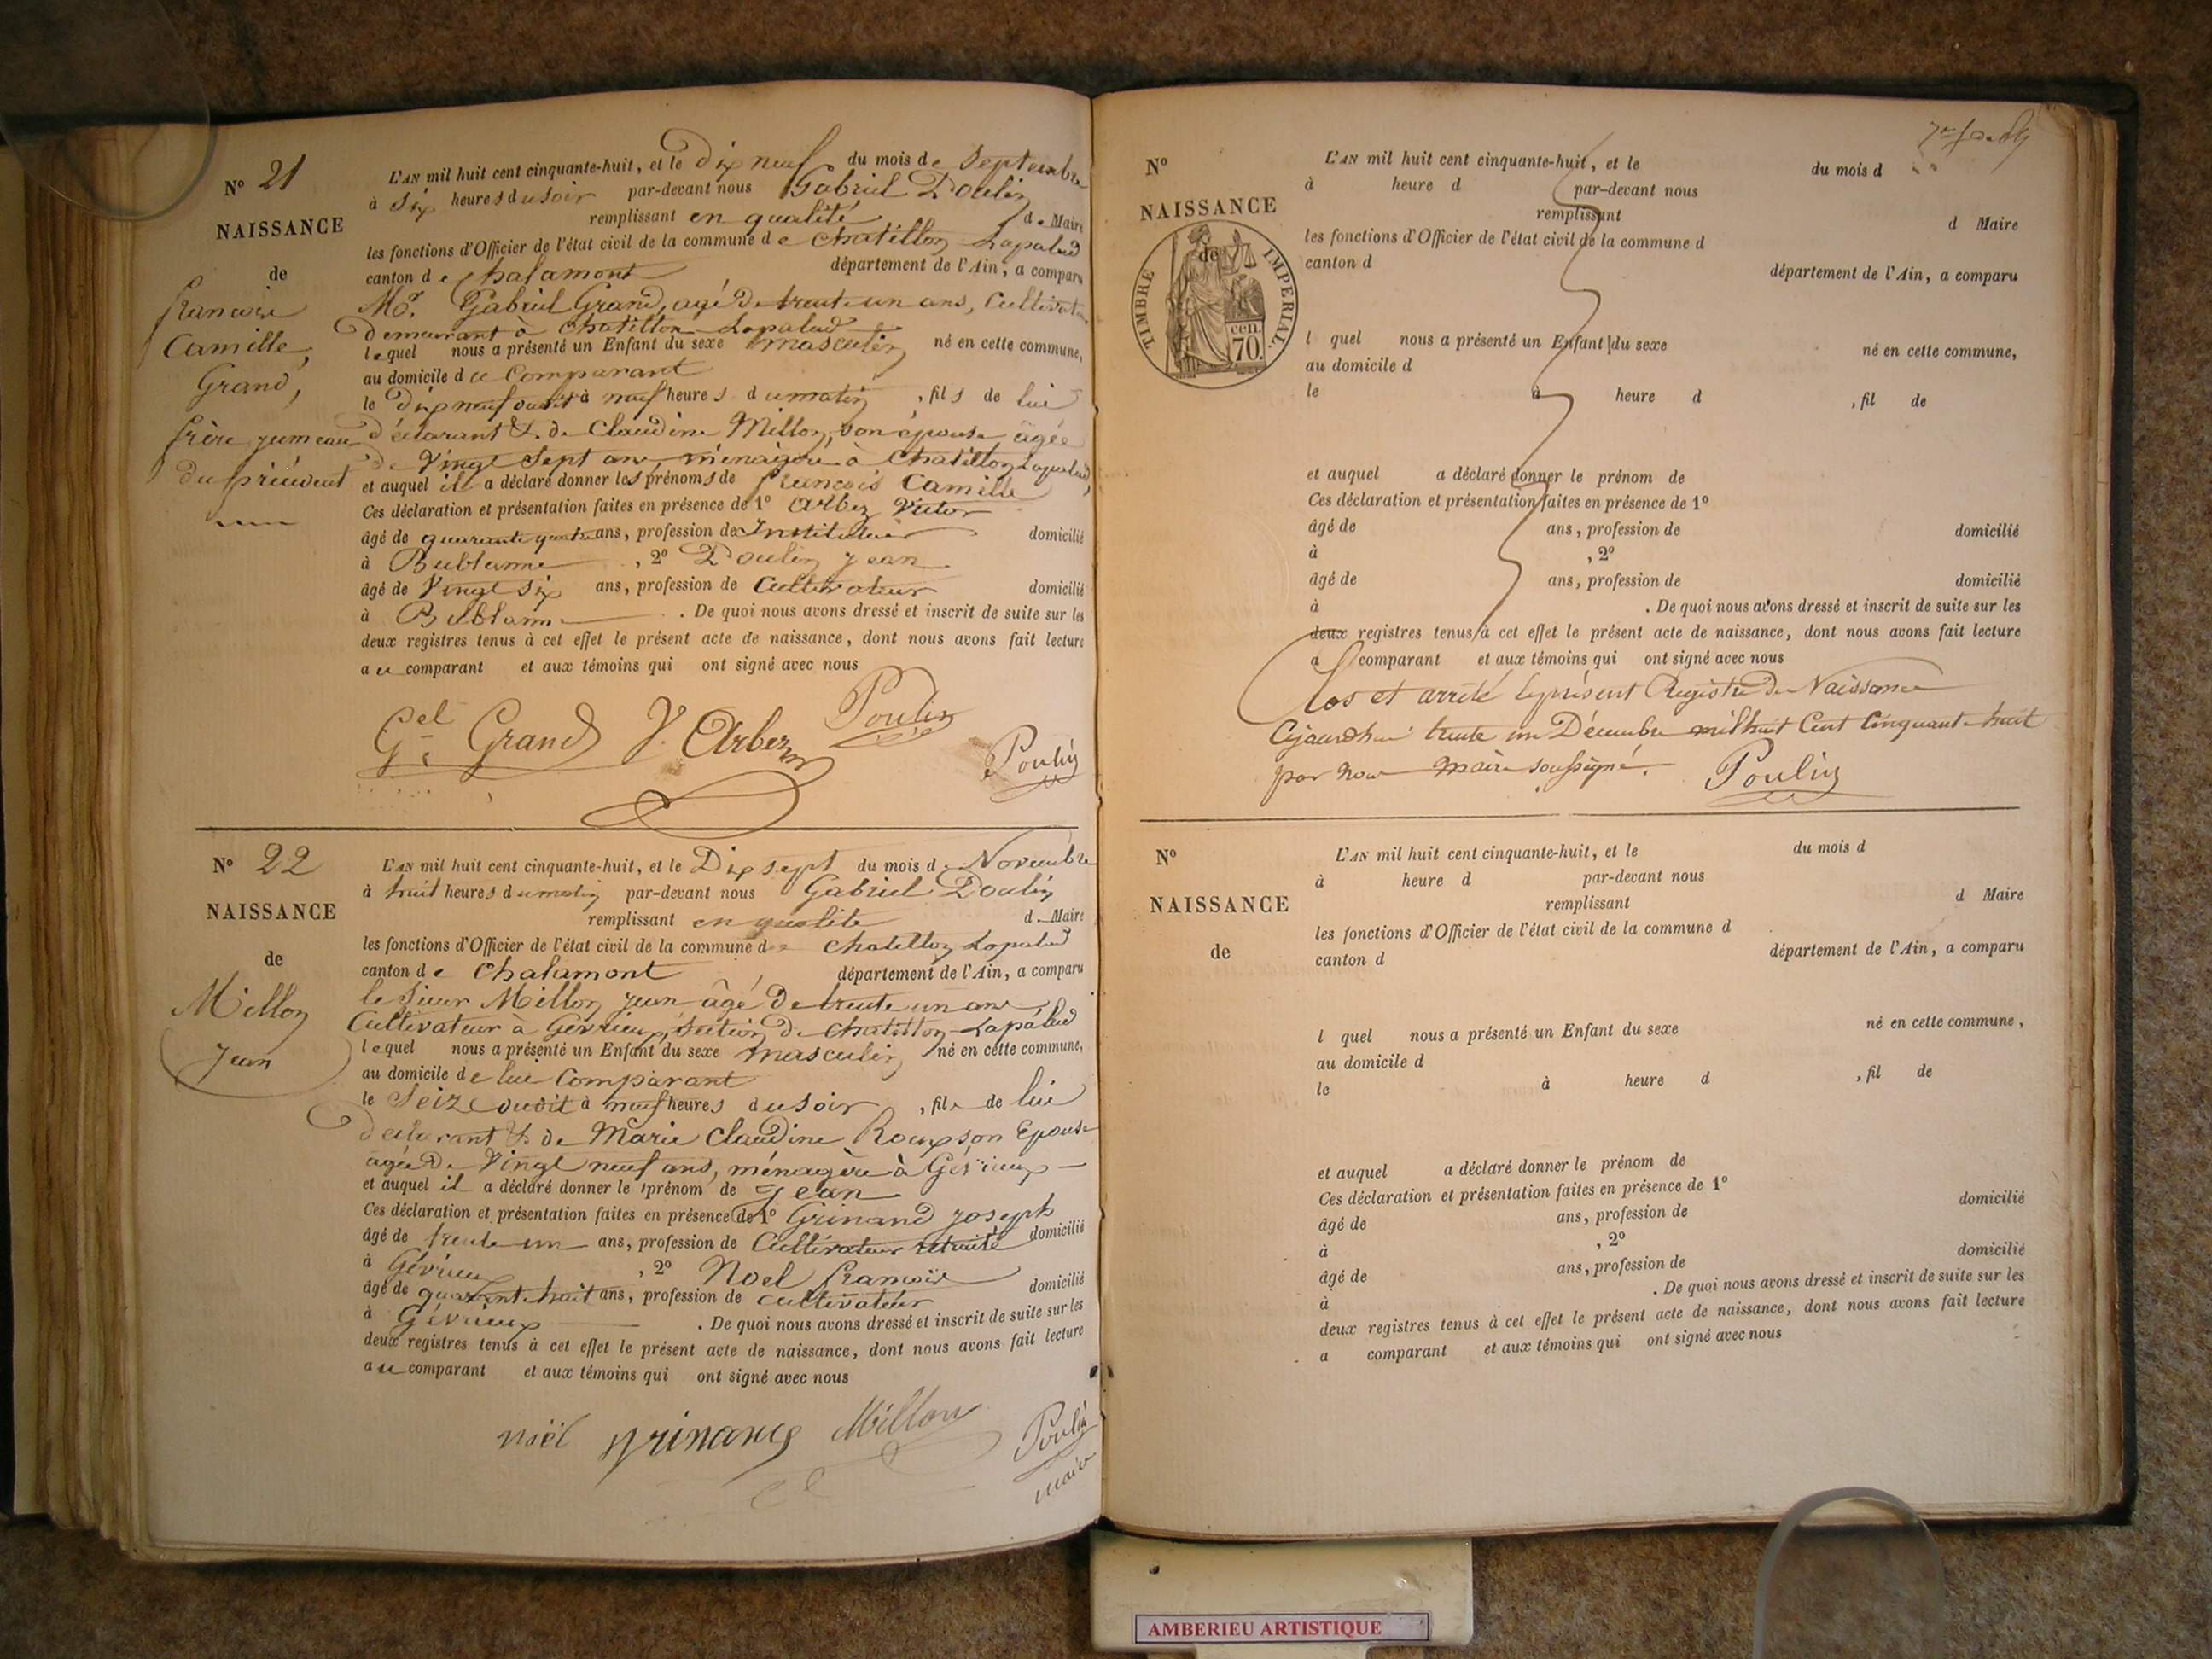 N° 21
NAISSANCE
de
francois
Camille,
Grand,
frère jumeau
du précédent
L'AN mil huit cent cinquante-huit, et le Dix neuf du mois de Septembre
à Six heures du soir par-devant nous Gabriel Poulin
remplissant en qualité de Maire
les fonctions d'Officier de l'état civil de la commune de Chatillon Lapalud
canton de Chalamont département de l'Ain, a comparu
Mr. Gabriel Grand, agé de trente un ans, Cultivateur
demeurant à Chatillon Lapalud
lequel nous a présenté un Enfant du sexe masculin né en cette commune,
au domicile du Comparant
le Dix neuf dudit à neuf heures du matin, fils de lui
déclarant & de Claudine Millon, son épouse agée
de Vingt Sept ans, ménagère à Chatillon Lapalud,
et auquel il a déclaré donner les prénoms de francois Camille
Ces déclaration et présentation faites en présence de 1° Arbez Victor
âgé de quarante quatre ans, profession de Instituteur domicilié
à Bublanne, 2° Poulin Jean
âgé de Vingt Six ans, profession de Cultivateur domicilié
à Bublanne . De quoi nous avons dressé et inscrit de suite sur les
deux registres tenus à cet effet le présent acte de naissance, dont nous avons fait lecture
au comparant et aux témoins qui ont signé avec nous
Gel Grand V. Arbez Poulin
Poulin
N° 22
NAISSANCE
de
Millon
Jean
L'AN mil huit cent cinquante-huit, et le Dix sept du mois de Novembre
à huit heures du matin par-devant nous Gabriel Poulin
remplissant en qualité de Maire
les fonctions d'Officier de l'état civil de la commune de Chatillon Lapalud
canton de Chalamont département de l'Ain, a comparu
le Sieur Millon Jean âgé de trente un ans
Cultivateur à Gévrieux, Section de Chatillon Lapalud
lequel nous a présenté un Enfant du sexe masculin né en cette commune,
au domicile de lui Comparant
le Seize dudit à neuf heures du soir, fils de lui
déclarant & de Marie Claudine Roux son Epouse
agée de Vingt neuf ans, ménagère à Gévrieux
et auquel il a déclaré donner le prénom de Jean
Ces déclaration et présentation faites en présence de 1° Grinand Joseph
âgé de trente un ans, profession de Cultivateur retraité domicilié
à Gévrieux, 2° Noel francois
âgé de quarante huit ans, profession de cultivateur domicilié
à Gévrieux . De quoi nous avons dressé et inscrit de suite sur les
deux registres tenus à cet effet le présent acte de naissance, dont nous avons fait lecture
au comparant et aux témoins qui ont signé avec nous
noël grinand Millon Poulin
maire
N°
NAISSANCE
de
TIMBRE IMPERIAL
cen.
70.
L'AN mil huit cent cinquante-huit, et le du mois d
à heure d par-devant nous
remplissant d Maire
les fonctions d'Officier de l'état civil de la commune d
canton d département de l'Ain, a comparu
l quel nous a présenté un Enfant du sexe né en cette commune,
au domicile d
le à heure d , fil de
et auquel a déclaré donner le prénom de
Ces déclaration et présentation faites en présence de 1°
âgé de ans, profession de domicilié
à , 2°
âgé de ans, profession de domicilié
à . De quoi nous avons dressé et inscrit de suite sur les
deux registres tenus à cet effet le présent acte de naissance, dont nous avons fait lecture
a comparant et aux témoins qui ont signé avec nous
Clos et arrêté le présent Registre de Naissance
Cejourd'hui trente un Décembre mil huit Cent Cinquante huit
par nous maire soussigné. Poulin
N°
NAISSANCE
de
L'AN mil huit cent cinquante-huit, et le du mois d
à heure d par-devant nous
remplissant d Maire
les fonctions d'Officier de l'état civil de la commune d
canton d département de l'Ain, a comparu
l quel nous a présenté un Enfant du sexe né en cette commune,
au domicile d
le à heure d , fil de
et auquel a déclaré donner le prénom de
Ces déclaration et présentation faites en présence de 1°
âgé de ans, profession de domicilié
à , 2°
âgé de ans, profession de domicilié
à . De quoi nous avons dressé et inscrit de suite sur les
deux registres tenus à cet effet le présent acte de naissance, dont nous avons fait lecture
a comparant et aux témoins qui ont signé avec nous
AMBERIEU ARTISTIQUE